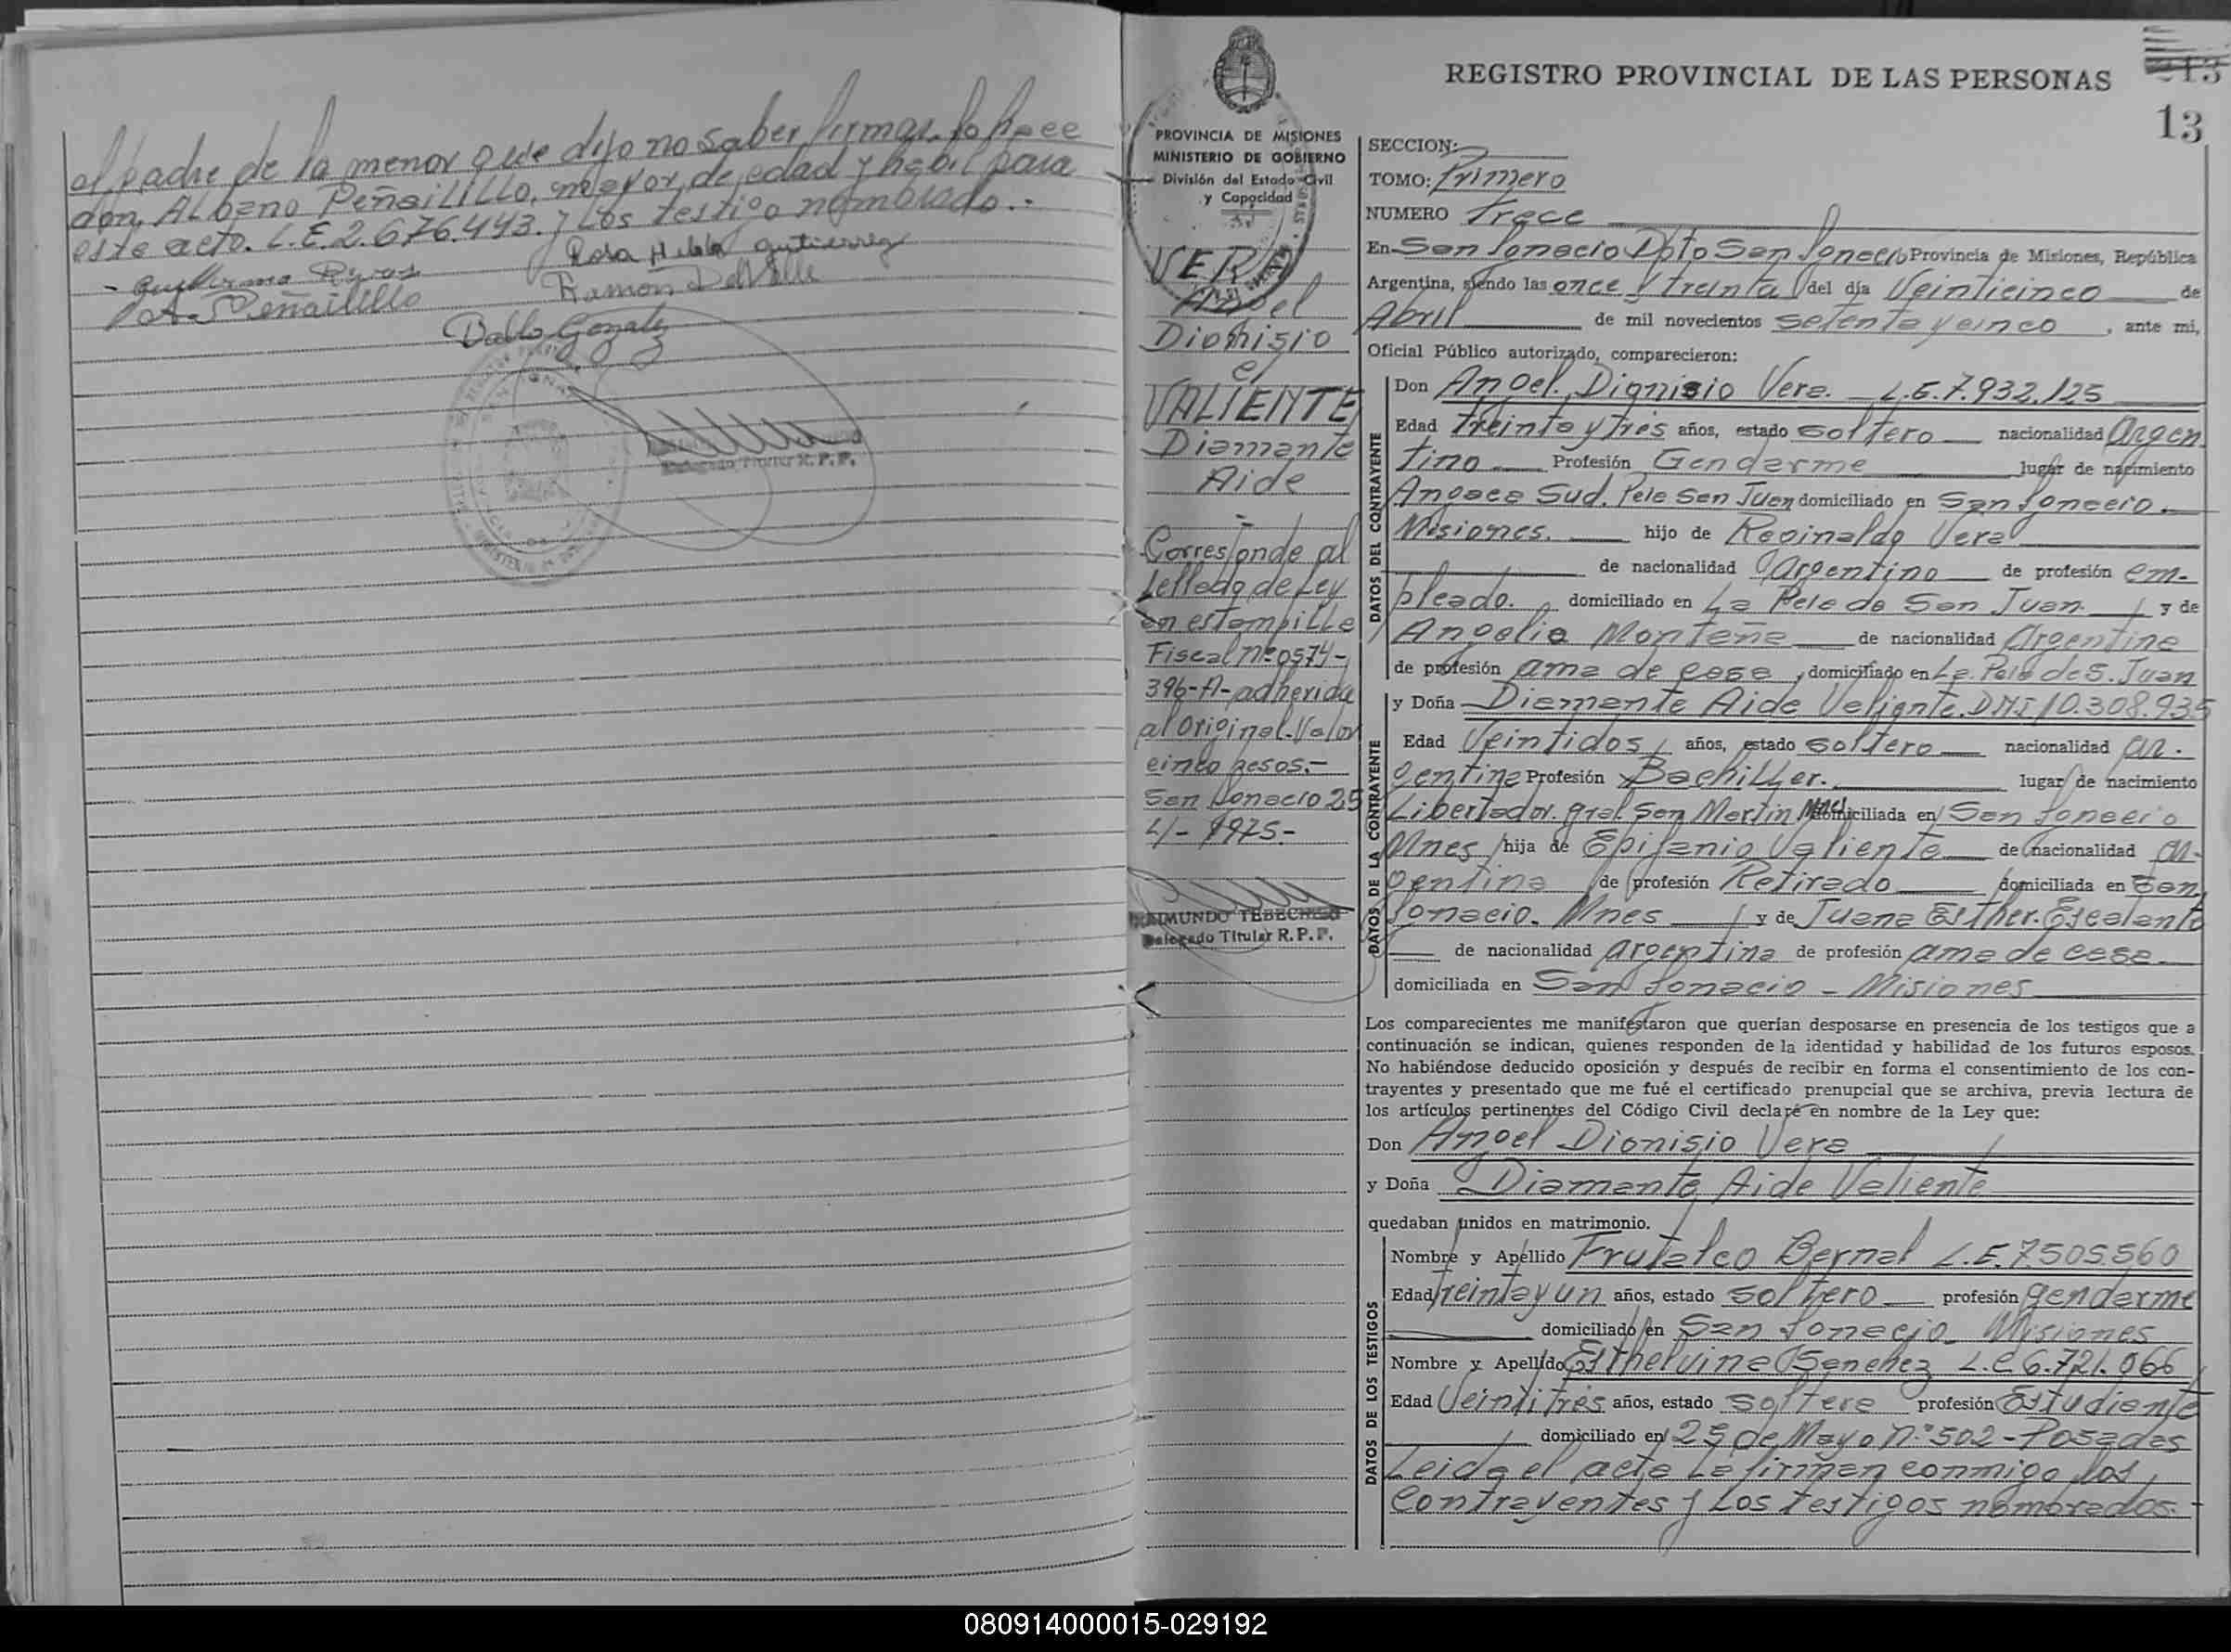 el padre de la menor que dijo no saber firmar. lo hace
don, Albano Peñailillo, mayor de edad y habil para
este acto. L.E. 2.676.443. y los testigo nombrado.-
Rosa Hilda Gutierrez
- Guillermo Rivas
Ramon Del Valle
A. Peñailillo
Pablo Gonzalez
Delegado Titular R.P.P.
PROVINCIA DE MISIONES
MINISTERIO DE GOBIERNO
División del Estado Civil
y Capacidad
VERA
Angel
Dionisio
e/
VALIENTE
Diamante
Aide
-
Corresponde al
Sellado de Ley
en estampilla
Fiscal Nº 0574-
396-A- adherida
al Original. Valor
cinco pesos.-
San Ignacio 25
4/- 1975-
RAIMUNDO
Delegado Titular R.P.P.
REGISTRO PROVINCIAL DE LAS PERSONAS
213
13
SECCION:
TOMO: Primero
NUMERO Trece
En San Ignacio Dpto San Ignacio Provincia de Misiones, República
Argentina, siendo las once y treinta del día Veinticinco de
Abril de mil novecientos setenta y cinco, ante mi,
Oficial Público autorizado, comparecieron:
DATOS DEL CONTRAYENTE
Don Angel Dionisio Vera. L.E. 7.932.125
Edad treinta y tres años, estado soltero nacionalidad argen
tino Profesión Gendarme lugar de nacimiento
Angaco Sud. Pcia San Juan domiciliado en San Ignacio
Misiones. hijo de Reginaldo Vera
de nacionalidad argentino de profesión em-
pleado. domiciliado en La Pcia de San Juan y de
Angelia Montaña de nacionalidad argentina
de profesión ama de casa, domiciliado en La Pcia de S. Juan
DATOS DE LA CONTRAYENTE
y Doña Diamante Aide Valiente. DNI 10.308.935
Edad Veintidos años, estado soltero nacionalidad ar-
gentina Profesión Bachiller. lugar de nacimiento
Libertador. gral. San Martin Mnes domiciliada en San Ignacio
Mnes hija de Epifanio Valiente de nacionalidad ar-
gentina de profesión Retirado domiciliada en San
Ignacio. Mnes y de Juana Esther. Escalante
de nacionalidad argentina de profesión ama de casa
domiciliada en San Ignacio - Misiones
Los comparecientes me manifestaron que querían desposarse en presencia de los testigos que a
continuación se indican, quienes responden de la identidad y habilidad de los futuros esposos.
No habiéndose deducido oposición y después de recibir en forma el consentimiento de los con-
trayentes y presentado que me fué el certificado prenupcial que se archiva, previa lectura de
los artículos pertinentes del Código Civil declaré en nombre de la Ley que:
Don Angel Dionisio Vera
y Doña Diamante Aide Valiente
quedaban unidos en matrimonio.
DATOS DE LOS TESTIGOS
Nombre y Apellido Frutalco Bernal L.E. 7505.560
Edad treinta y un años, estado soltero profesión gendarme
domiciliado en San Ignacio Misiones
Nombre y Apellido Esthelvina Sanchez L.C 6.721.066
Edad Veintitres años, estado soltera profesión Estudiante
domiciliado en 25 de Mayo Nº 502 - Posadas
Leida el acta la firman conmigo los
contrayentes y los testigos nombrados.-
080914000015-029192